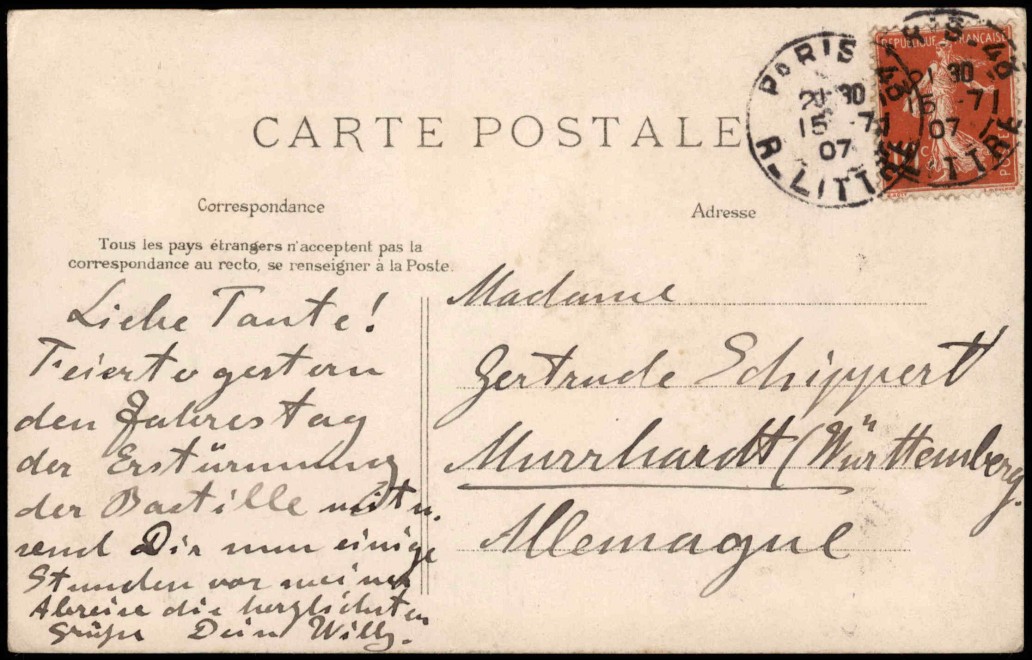 CARTE POSTALE
PARIS - 48
21 30
15 - 7
07
R. LITTRÉ
REPUBLIQUE FRANÇAISE
PARIS - 48
21 30
15 - 7
07
R. LITTRÉ
Correspondance
Tous les pays étrangers n'acceptent pas la
correspondance au recto, se renseigner à la Poste.
Liebe Tante!
Feierte gestern
den Jahrestag
der Erstürmung
der Bastille mit u.
send Dir nun einige
Stunden vor meiner
Abreise die herzlichsten
Grüße Dein Willy.
Adresse
Madame
Gertrude Schippert
Murrhardt (Württemberg)
Allemagne